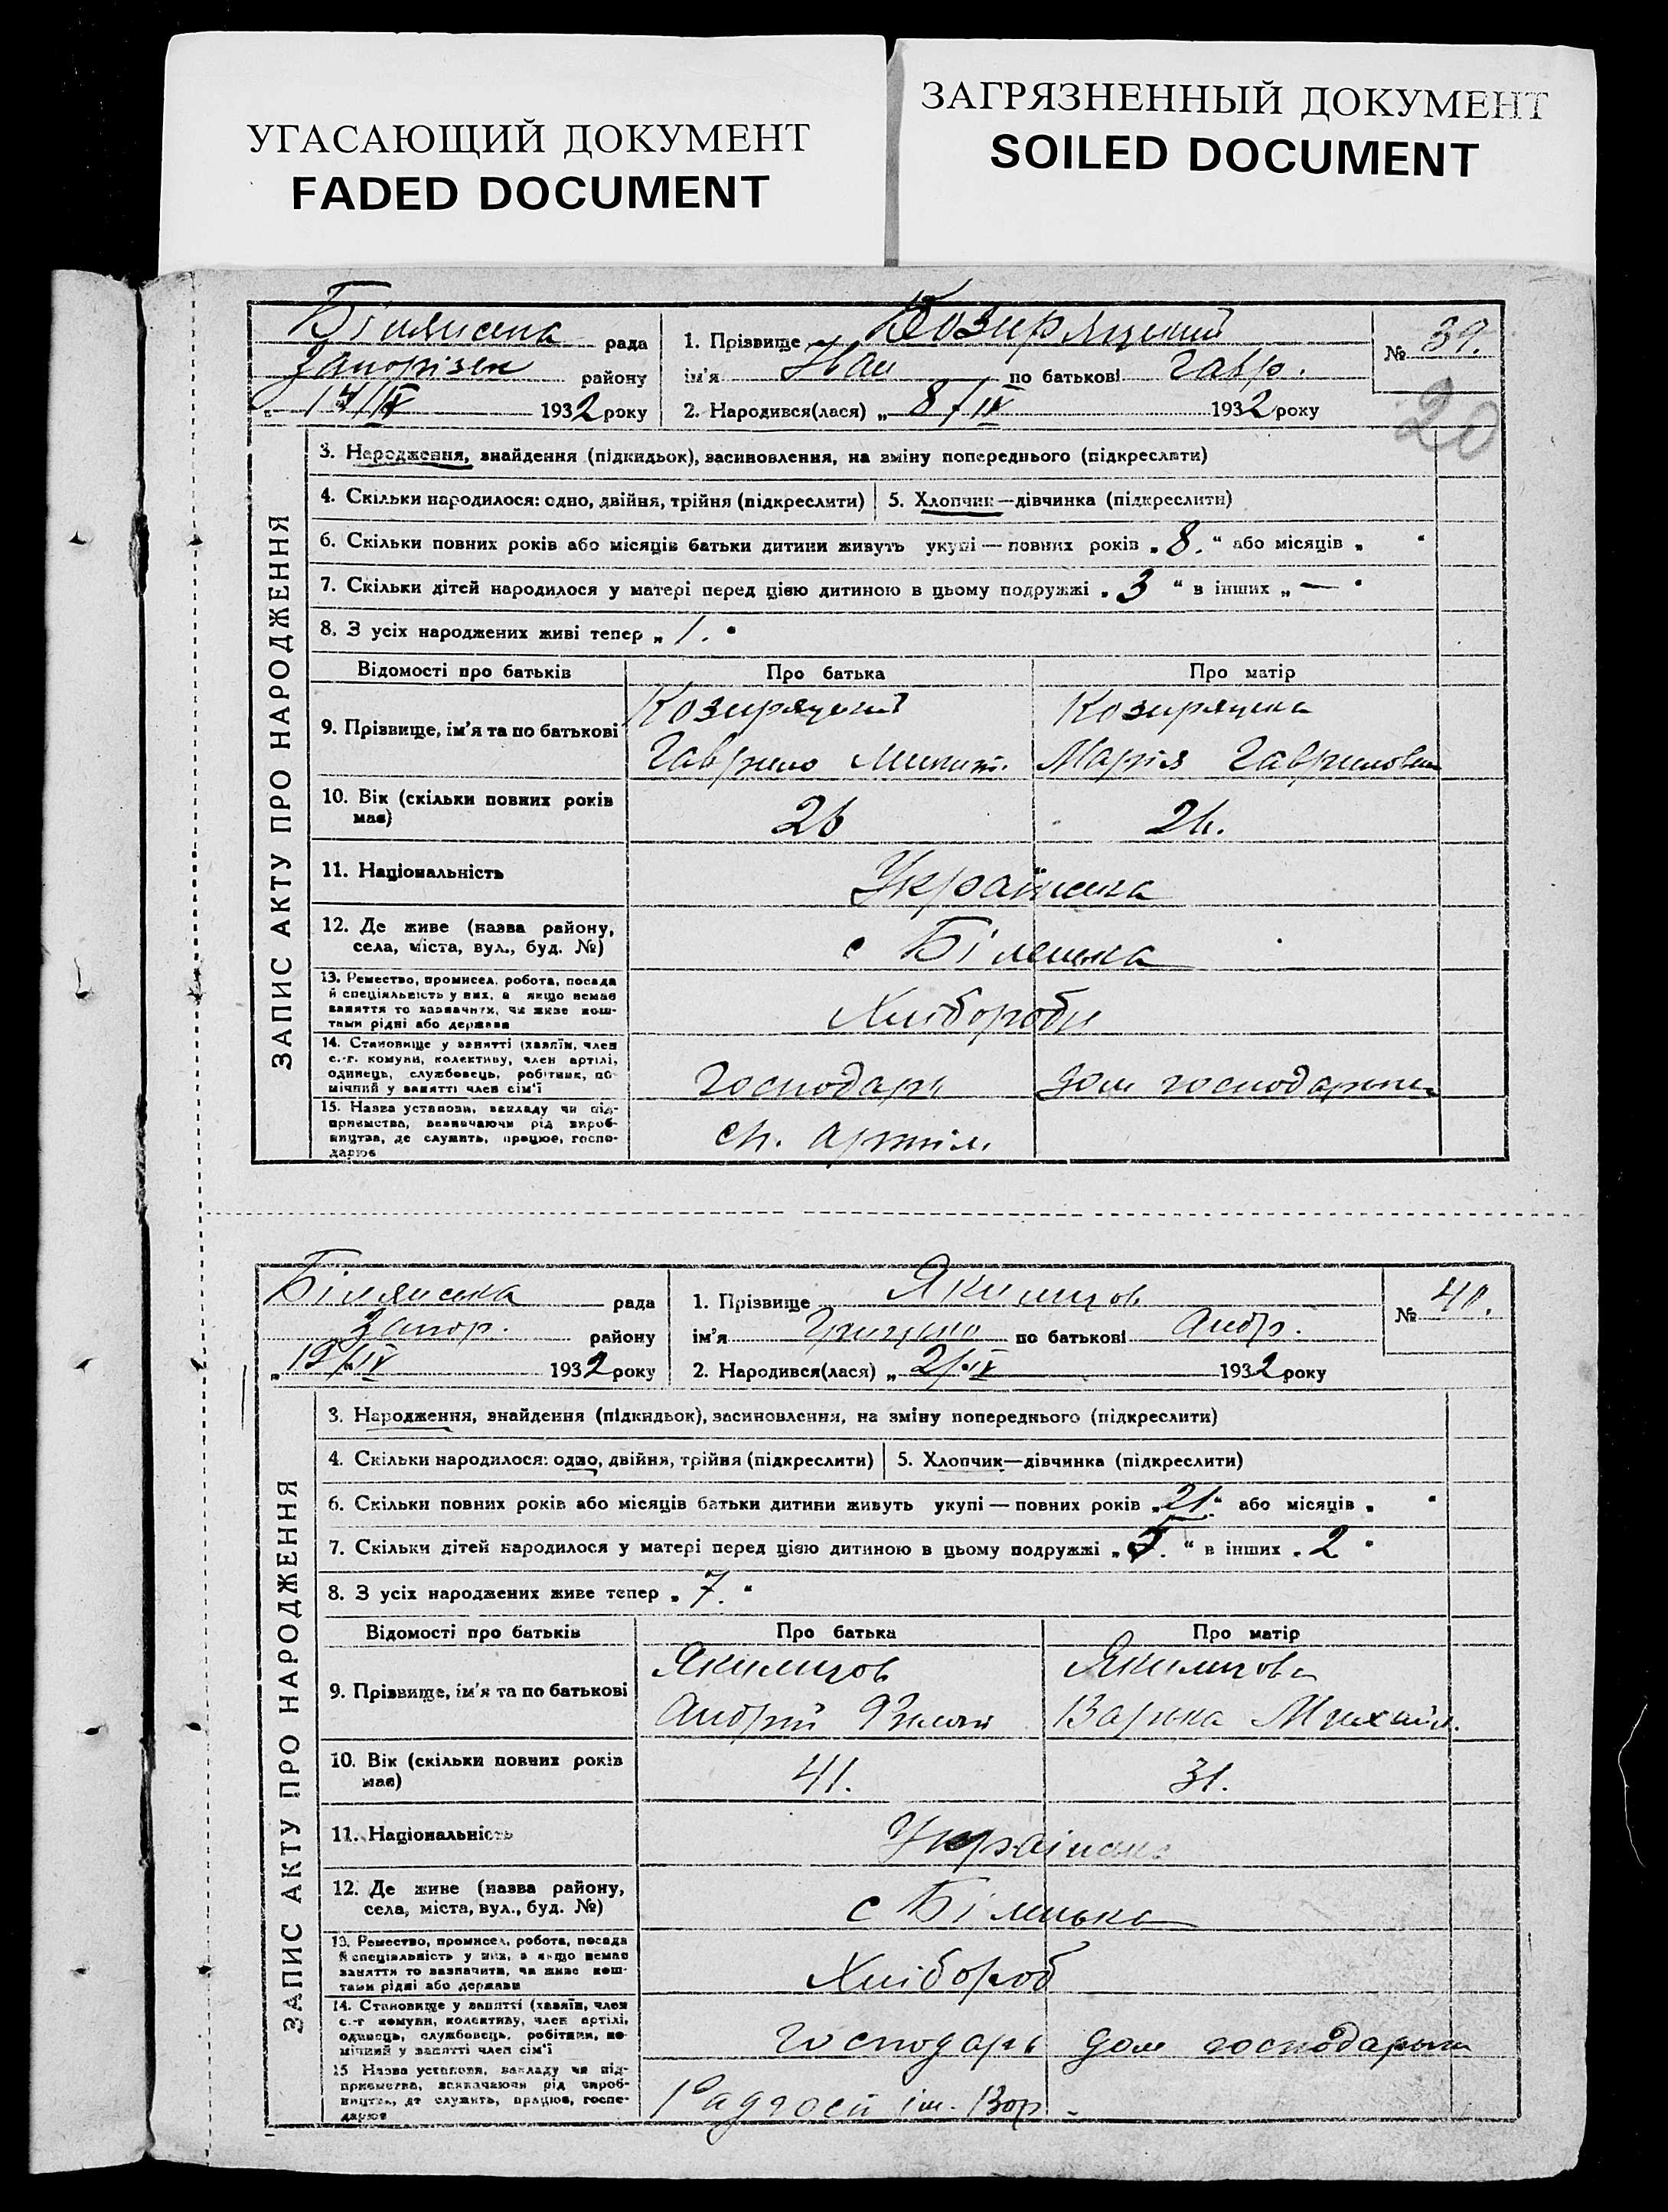 УГАСАЮЩИЙ ДОКУМЕНТ
FADED DOCUMENT
ЗАГРЯЗНЕННЫЙ ДОКУМЕНТ
SOILED DOCUMENT
рада
району
14/IV 1932 року
1. Прізвище Козиряцький
ім'я Іван по батькові Гавр.
2. Народився(лася) „ 8/IV 1932 року
№ 39.
20
ЗАПИС АКТУ ПРО НАРОДЖЕННЯ
3. Народження, знайдення (підкидьок), засиновлення, на зміну попереднього (підкреслити)
4. Скільки народилося: одно, двійня, трійня (підкреслити)
5. Хлопчик—дівчинка (підкреслити)
6. Скільки повних років або місяців батьки дитини живуть укупі — повних років „ 8. “ або місяців „ “
7. Скільки дітей народилося у матері перед цією дитиною в цьому подружжі „ 3 “ в інших „ — “
8. З усіх народжених живі тепер „ 1. “
Відомості про батьків
Про батька
Про матір
9. Прізвище, ім'я та по батькові
Козиряцький
Гаврило
Козиряцька
Марія Гаврилови
10. Вік (скільки повних років має)
26
26.
11. Національність
Українська
12. Де живе (назва району, села, міста, вул., буд. №)
с Біленька
13. Ремество, промисел, робота, посада й спеціяльність у них, а якщо немає заняття то зазначити, чи живе коштами рідні або держави
Хлібороби
14. Становище у занятті (хазяїн, член с.-г. комуни, колективу, член артілі, одинець, службовець, робітник, помічний у занятті член сім'ї
Господарь
дом господарьки
15. Назва установи, закладу чи підприємства, зазначаючи рід виробництва, де служить, працює, господарює
сг. артіл.
Білянська рада
Запор. району
„ 19/IV 1932 року
1. Прізвище Якимцов
ім'я Грицько по батькові Андр.
2. Народився(лася) „ 2/IV 1932 року
№ 40.
ЗАПИС АКТУ ПРО НАРОДЖЕННЯ
3. Народження, знайдення (підкидьок), засиновлення, на зміну попереднього (підкреслити)
4. Скільки народилося: одно, двійня, трійня (підкреслити)
5. Хлопчик—дівчинка (підкреслити)
6. Скільки повних років або місяців батьки дитини живуть укупі — повних років „ 21. “ або місяців „ “
7. Скільки дітей народилося у матері перед цією дитиною в цьому подружжі „ 5. “ в інших „ 2 “
8. З усіх народжених живе тепер „ 7. “
Відомості про батьків
Про батька
Про матір
9. Прізвище, ім'я та по батькові
Якимцов
Андрій
Якимцова
Варька Михайл.
10. Вік (скільки повних років має)
41.
31.
11. Національність
Українська
12. Де живе (назва району, села, міста, вул., буд. №)
с Біленька
13. Ремество, промисел, робота, посада й спеціяльність у них, а якщо немає заняття то зазначити, чи живе коштами рідні або держави
Хлібороб
14. Становище у занятті (хазяїн, член с.-г. комуни, колективу, член артілі, одинець, службовець, робітник, помічний у занятті член сім'ї
господарь
дом господарьки
15. Назва установи, закладу чи підприємства, зазначаючи рід виробництва, де служить, працює, господарює
Радгосп ім. Вор.